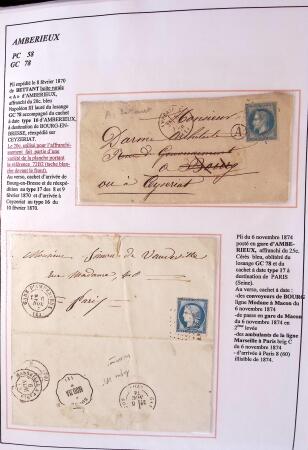 AMBERIEUX
PC 58
GC 78
Pli expédié le 8 février 1870
de BETTANT boîte rurale
« A » d'AMBERIEUX,
affranchi du 20c. bleu
Napoléon III lauré du losange
GC 78 accompagné du cachet
à date type 16 d'AMBERIEUX,
à destination de BOURG-EN-
BRESSE, réexpédié sur
CEYZERIAT.
Le 20c. utilisé pour l'affranchis-
sement fait partie d'une
variété de la planche portant
la référence
devant le front).
Au verso, cachet d'arrivée de
Bourg-en-Bresse et de réexpé-
dition au type 17 des 8 et 9
février 1870 et d'arrivée à
Ceyzeriat au type 16 du
10 février 1870.
A
Monsieur
Darme
ou à Ceyzeriat
Pli du 6 novembre 1874
posté en gare d'AMBE-
RIEUX, affranchi du 25c.
Cérès bleu, oblitéré du
losange GC 78 et du
cachet à date type 17 à
destination de PARIS
(Seine).
Au verso, cachet à date :
-des convoyeurs de BOURG
ligne Modane à Macon du
6 novembre 1874
-de passe en gare de Macon
du 6 novembre 1874 en
2ème levée
-des ambulants de la ligne
Marseille à Paris brig C
du 6 novembre 1874
-d'arrivée à Paris 8 (60)
illisible de 1874.
Monsieur
Paris